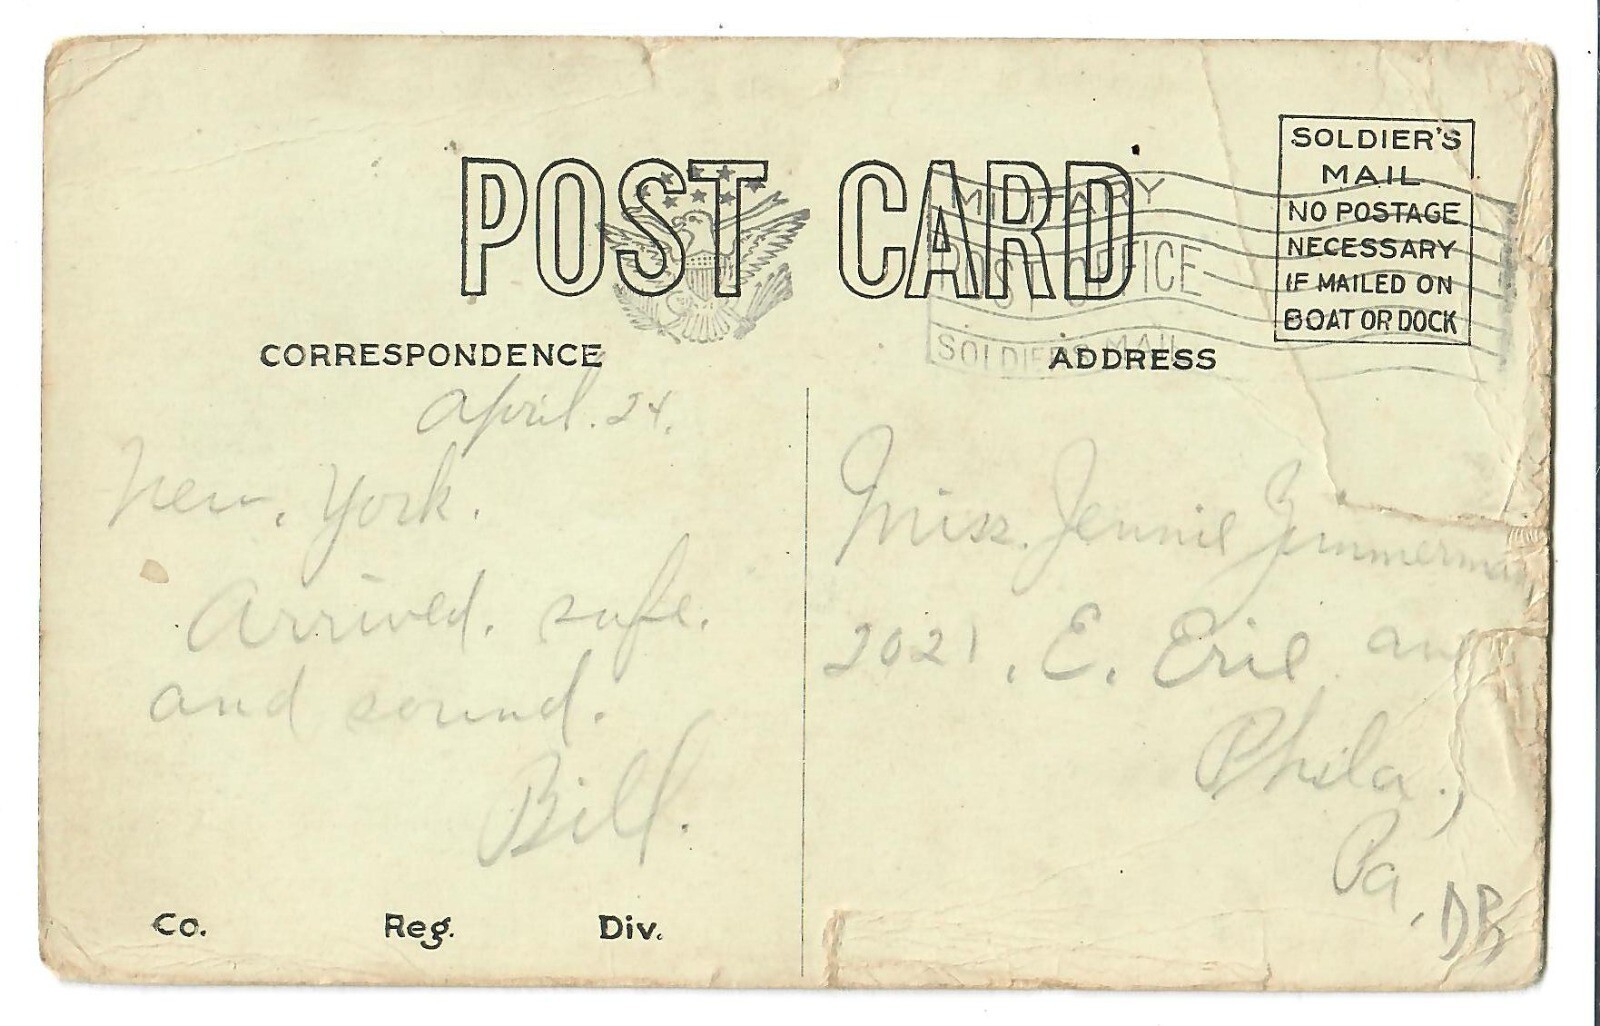 POST CARD
SOLDIER'S
MAIL
NO POSTAGE
NECESSARY
IF MAILED ON
BOAT OR DOCK
MILITARY
POST OFFICE
SOLDIER'S MAIL
CORRESPONDENCE
April. 24.
New. York.
Arrived. safe.
and sound.
Bill.
Co. Reg. Div.
ADDRESS
Miss. Jennie Zimmerman
2021, E. Erie
Phila.,
Pa,
DB